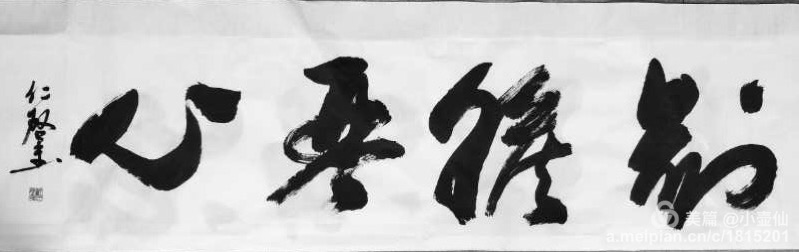 劍膽琴心
仁
美篇 @小壶仙
a.meipian.cn/c/1815201